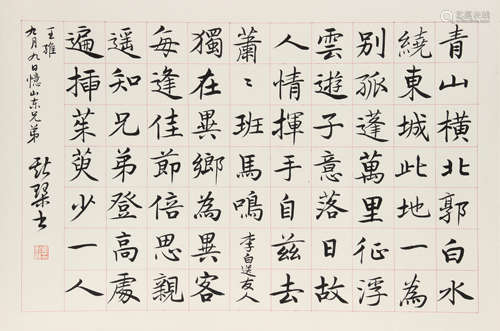 青山橫北郭白水
繞東城此地一為
別孤蓬萬里征浮
雲遊子意落日故
人情揮手自茲去
蕭〻班馬鳴
李白送友人
獨在異鄉為異客
每逢佳節倍思親
遥知兄弟登高處
遍插茱萸少一人
王維
九月九日憶山东兄弟